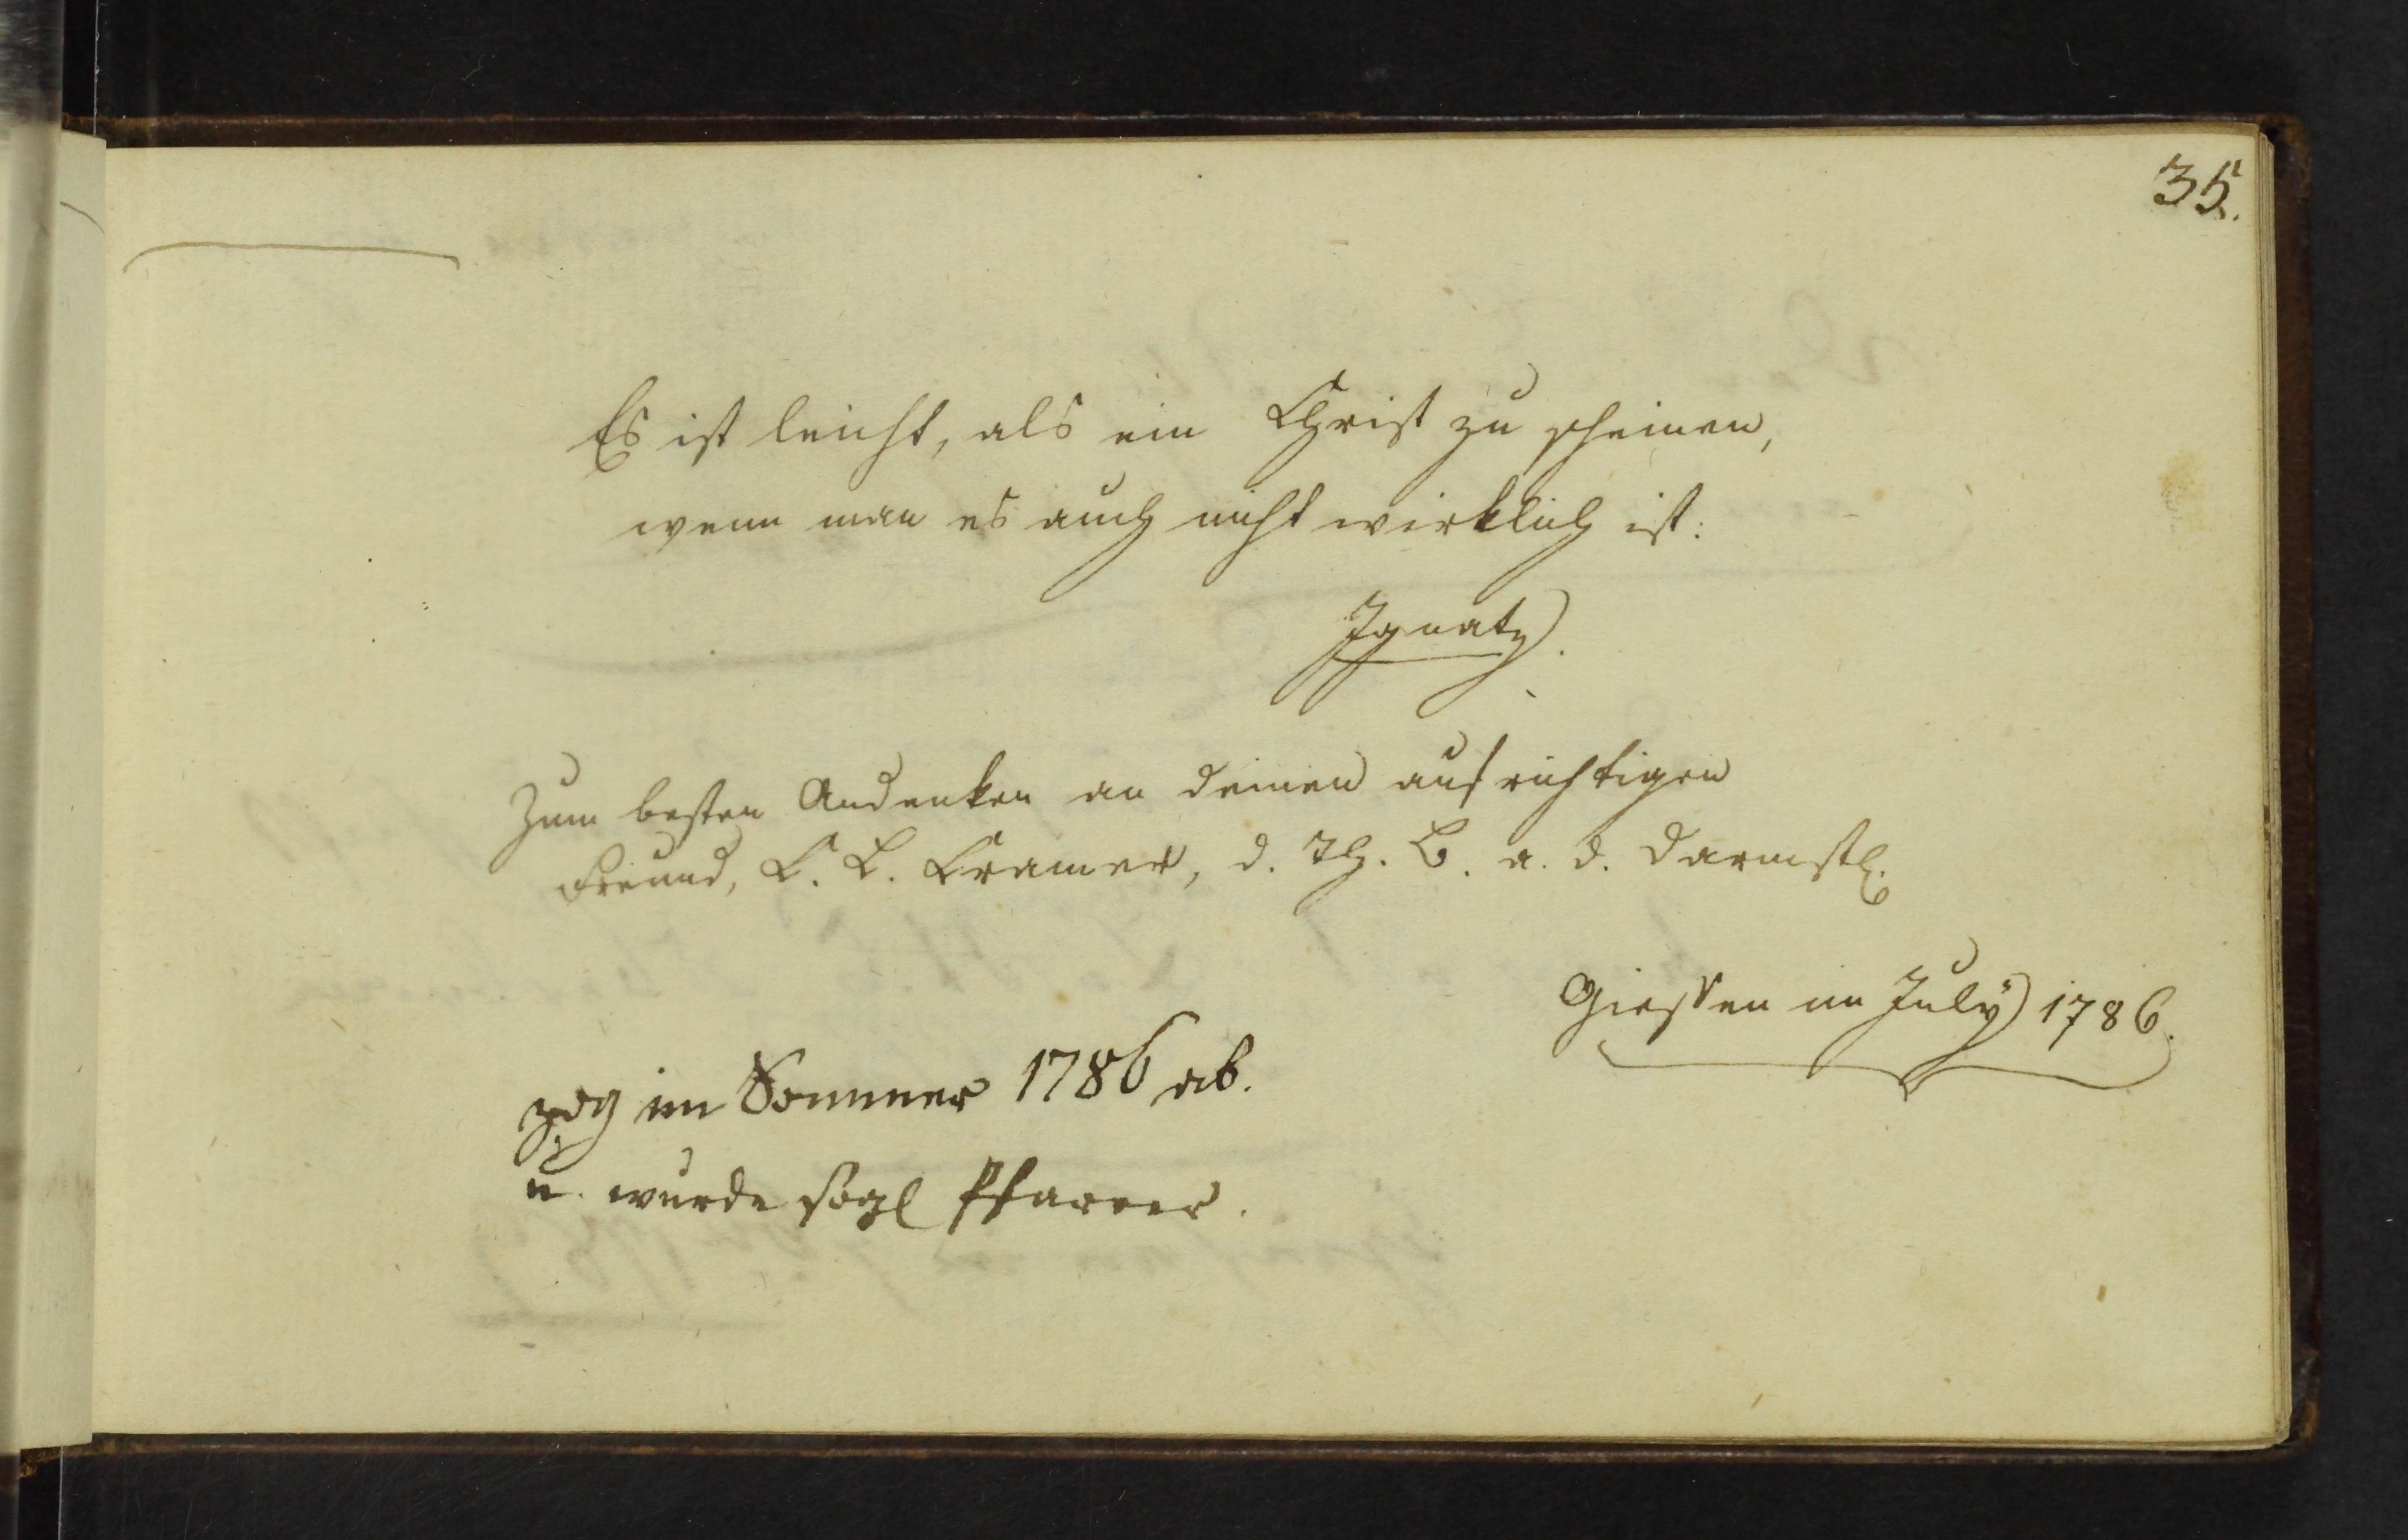 35.
Es ist leicht, als ein Christ zu scheinen,
wenn man es auch nicht wirklich ist:
Ignatz.
Zum besten Andenken an deinen aufrichtigen
Freund, C. L. Cramer, d. Th. B. a. d. Darmstl.
Giessen im July 1786.
zog im Sommer 1786 ab.
u. wurde sogl Pfarrer.